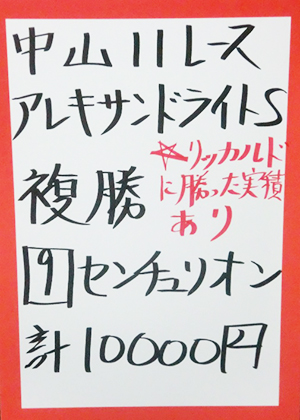 中山11レース
アレキサンドライトS
複勝
☆リッカルド
に勝った実績
あり
9センチュリオン
計10000円